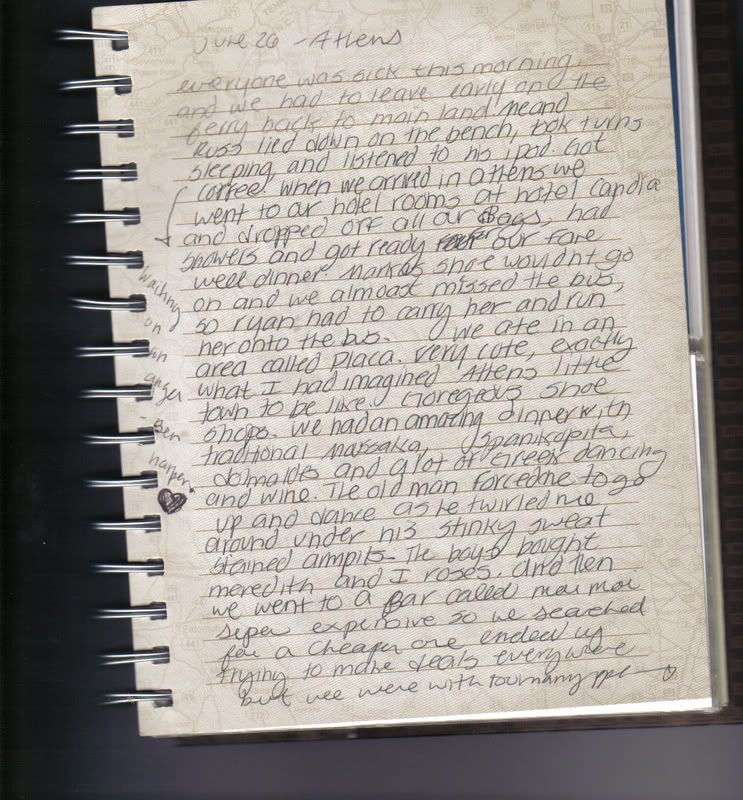 June 26 - Athens
everyone was sick this morning,
and we had to leave early on the
ferry back to main land me and
Russ lied down on the bench, took turns
sleeping and listened to his ipod. Got
coffee when we arrived in athens we
went to our hotel rooms at hotel candia
and dropped off all our Bags, had
showers and got ready for our fare
well dinner. Marias shoe wouldnt go
on and we almost missed the bus,
so ryan had to carry her and run
her onto the bus. we ate in an
area called Placa. very cute, exactly
what I had imagined Athens little
town to be like. Goregeous shoe
shops. we had an amazing dinner with
traditional massaka, spanikopita,
dolmaldes and a lot of Greek dancing
and wine. The old man forced me to go
up and dance as he twirled me
around under his stinky sweat
stained armpits. The boys bought
meredith and I roses. and then
we went to a Bar called moi moi
super expensive so we searched
for a cheaper one ended up
trying to make deals everywhere
but wee were with too many ppl
waiting
on
an
angel
- Ben
harper